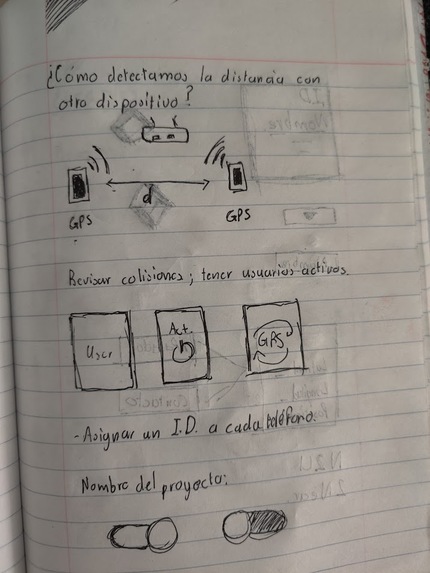 ¿Cómo detectamos la distancia con
otro dispositivo?
d
GPS GPS
Revisar colisiones; tener usuarios activos.
User Act. GPS
-Asignar un I.D. a cada teléfono.
Nombre del proyecto: